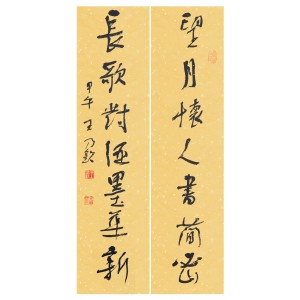 望月懷人書簡密
長歌對酒墨華新
甲午 王乃欽